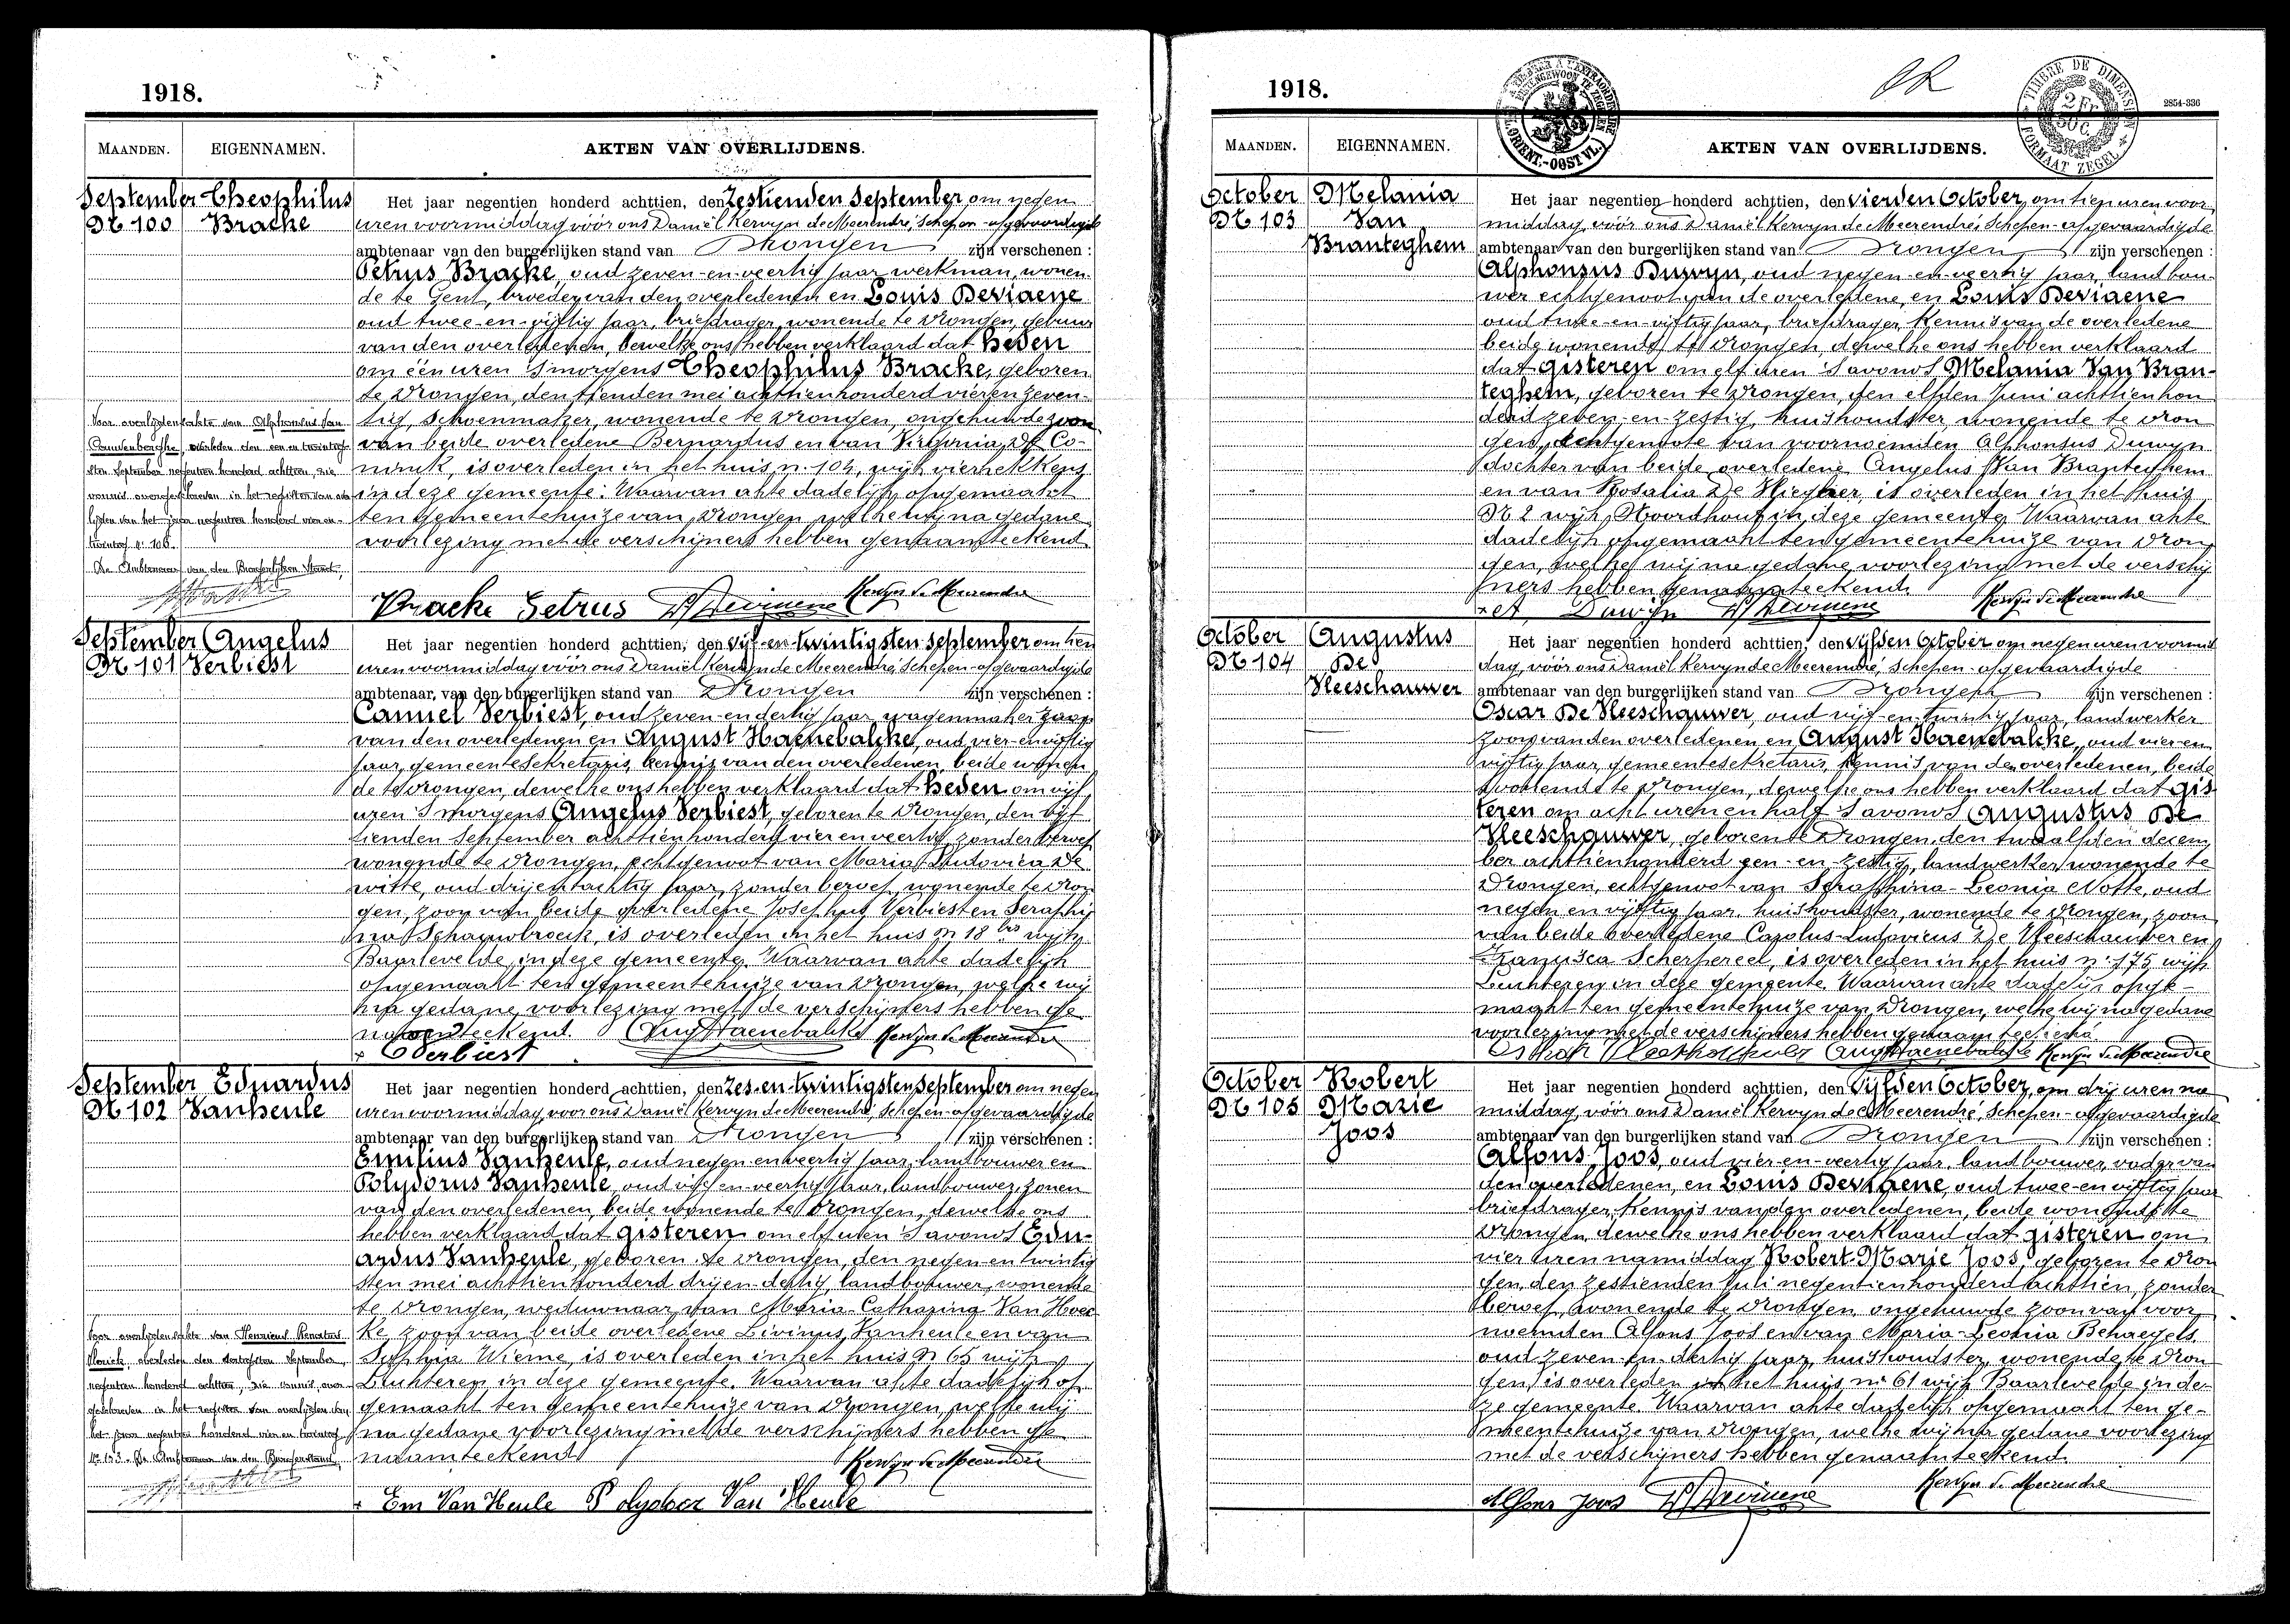 1918.
MAANDEN. EIGENNAMEN. AKTEN VAN OVERLIJDENS.
September Theophilus
Nr 100 Bracke
Het jaar negentien honderd achttien, den Zestienden September, om negen
uren voormiddag vóór ons Daniël Kervyn de Meerendré, Schepen-afgevaardigde
ambtenaar van den burgerlijken stand van Drongen zijn verschenen :
Petrus Bracke, oud zeven-en-veertig jaar werkman, wonen-
de te Gent, broeder van den overledenen en Louis Deviaene
oud twee-en-vijftig jaar, briefdrager, wonende te Drongen, gebuur
van den overledenen, dewelke ons hebben verklaard dat heden
om één uren 's morgens Theophilus Bracke, geboren
te Drongen, den tienden mei achttienhonderd vier en zeven-
tig, Schoenmaker, wonende te Drongen, ongehuwde zoon
van beide overledene Bernardus en van Virginia De Co-
ninck, is overleden in het huis n. 104, wijk vierhekkens
in deze gemeente. Waarvan akte dadelijk opgemaakt
ten gemeentehuize van Drongen, welke wij na gedane
voorlezing met de verschijners hebben genaamteekend
Voor overlijdensakte van Alphonsius Van
Cauwenberghe, overleden den een en twintig-
sten September negentien honderd achttien, zie
vonnis overgeschreven in het register van over-
lijden van het jaar negentien honderd vier en-
twintig n. 106.
De Ambtenaar van den Burgerlijken Stand,
Bracke Petrus L. Deviaene Kervyn de Meerendre
September Angelus
Nr 101 Verbiest
Het jaar negentien honderd achttien, den vijf-en-twintigsten September om tien
uren voormiddag vóór ons Daniël Kervyn de Meerendré, Schepen-afgevaardigde
ambtenaar, van den burgerlijken stand van Drongen zijn verschenen :
Camiel Verbiest, oud zeven-en dertig jaar wagenmaker zoon
van den overledenen en August Haenebalcke, oud vier-en vijftig
jaar, gemeentesekretaris, kennis van den overledenen, beide wonen-
de te Drongen, dewelke ons hebben verklaard dat heden om vijf
uren 's morgens Angelus Verbiest, geboren te Drongen, den vijf
tienden September achttienhonderd vier en veertig, zonder beroep
wonende te Drongen, echtgenoot van Maria Ludovica De
witte, oud drij en tachtig jaar, zonder beroep, wonende te Dron
gen, zoon van beide overledene Josephus Verbiest en Seraphi
na Schauwbroeck, is overleden in het huis N 18 bis wijk
Baarlevelde, in deze gemeente. Waarvan akte dadelijk
opgemaakt ten gemeentehuize van Drongen, welke wij
na gedane voorlezing met de verschijners hebben ge
naamteekend. Aug Haenebalcke Kervyn de Meerendre
C Verbiest
September Eduardus
Nr 102 Vanheule
Het jaar negentien honderd achttien, den zes-en-twintigsten September om negen
uren voormiddag, voor ons Daniël Kervyn de Meerendré, Schepen-afgevaardigde
ambtenaar van den burgerlijken stand van Drongen zijn verschenen :
Emilius Vanheule, oud negen-en veertig jaar, landbouwer en
Polydorus Vanheule, oud vijf-en-veertig jaar, landbouwer, zonen
van den overledenen, beide wonende te Drongen, dewelke ons
hebben verklaard dat gisteren om elf uren 's avonds Edu-
ardus Vanheule, geboren te Drongen, den negen en twintig
sten mei achttienhonderd drij en dertig, landbouwer, wonende
te Drongen, weduwnaar van Maria-Catharina Van Hoec
ke, zoon van beide overledene Livinus Vanheule en van
Sophia Wieme, is overleden in het huis N 65 wijk
Luchteren in deze gemeente. Waarvan akte dadelijk op
gemaakt ten gemeentehuize van Drongen, welke wij
na gedane voorlezing met de verschijners hebben ge
naamteekend
Voor overlijdensakte van Henricus Renatus
overleden den September,
negentien honderd achttien, zie vonnis over-
geschreven in het register van overlijden van
het jaar negentien honderd vier en twintig
De Ambtenaar van den Burgerstand,
Kervyn de Meerendre
Em Van Heule Polydoor Van Heule
1918.
2 Fr 50 C.
TIMBRE DE DIMENSION
FORMAAT ZEGEL
2854-336
MAANDEN. EIGENNAMEN. AKTEN VAN OVERLIJDENS.
October Melania
Nr 103 Van
Branteghem
Het jaar negentien honderd achttien, den vierden October, om tien uren voor
middag, vóór ons Daniël Kervyn de Meerendré, Schepen-afgevaardigde
ambtenaar van den burgerlijken stand van Drongen zijn verschenen :
Alphonsus Duwyn, oud negen-en-veertig jaar, landbou-
wer echtgenoot van de overledene, en Louis Deviaene
oud twee-en-vijftig jaar, briefdrager, kennis van de overledene
beide wonende te Drongen, dewelke ons hebben verklaard
dat gisteren om elf uren 's avonds Melania Van Bran-
teghem, geboren te Drongen, den elfden Juni achttienhon
derd zeven-en-zestig, huishoudster, wonende te Dron
gen, echtgenoote van voornoemden Alphonsus Duwyn
dochter van beide overledene Angelus Van Branteghem
en van Rosalia De Vliegher, is overleden in het huis
Nr 2 wijk Noordhout in deze gemeente. Waarvan akte
dadelijk opgemaakt ten gemeentehuize van Dron
gen, welke wij na gedane voorlezing met de verschij
ners hebben genaamteekend.
A Duwijn L. Deviaene Kervyn de Meerendre
October Augustus
Nr 104 De
Vleeschauwer
Het jaar negentien honderd achttien, den vijfden October om negen uren voormid
dag, vóór ons Daniël Kervyn de Meerendré, Schepen-afgevaardigde
ambtenaar van den burgerlijken stand van Drongen zijn verschenen :
Oscar De Vleeschauwer, oud vijf-en-twintig jaar, landwerker
zoon van den overledenen en August Haenebalcke, oud vier en
vijftig jaar, gemeentesekretaris, kennis van den overledenen, beide
wonende te Drongen, dewelke ons hebben verklaard dat gis
teren om acht uren en half 's avonds Augustus De
Vleeschauwer, geboren te Drongen, den twaalfden decem
ber achttienhonderd een-en-zestig, landwerker, wonende te
Drongen, echtgenoot van Seraphina-Leonia Notte, oud
negen en vijftig jaar, huishoudster, wonende te Drongen, zoon
van beide overledene Carolus-Ludovicus De Vleeschauwer en
Francisca Scherpereel, is overleden in het huis n. 175 wijk
Luchteren in deze gemeente. Waarvan akte dadelijk opge-
maakt ten gemeentehuize van Drongen, welke wij na gedane
voorlezing met de verschijners hebben genaamteekend
Aug Haenebalcke Kervyn de Meerendre
October Robert
Nr 105 Marie
Joos
Het jaar negentien honderd achttien, den vijfden October, om drij uren na
middag, vóór ons Daniël Kervyn de Meerendré, Schepen-afgevaardigde
ambtenaar van den burgerlijken stand van Drongen zijn verschenen :
Alfons Joos, oud vier-en-veertig jaar, landbouwer, vader van
den overledenen, en Louis Deviaene, oud twee-en vijftig jaar
briefdrager, kennis van den overledenen, beide wonende te
Drongen, dewelke ons hebben verklaard dat gisteren om
vier uren namiddag Robert-Marie Joos, geboren te Dron
gen, den zestienden Juli negentienhonderd achttien, zonder
beroep, wonende te Drongen, ongehuwde zoon van voor
noemden Alfons Joos en van Maria-Leonia Behaegels
oud zeven-en-dertig jaar, huishoudster, wonende te Dron
gen, is overleden in het huis nr 61 wijk Baarlevelde in de-
ze gemeente. Waarvan akte dadelijk opgemaakt ten ge-
meentehuize van Drongen, welke wij na gedane voorlezing
met de verschijners hebben genaamteekend.
Alfons Joos L. Deviaene Kervyn de Meerendre